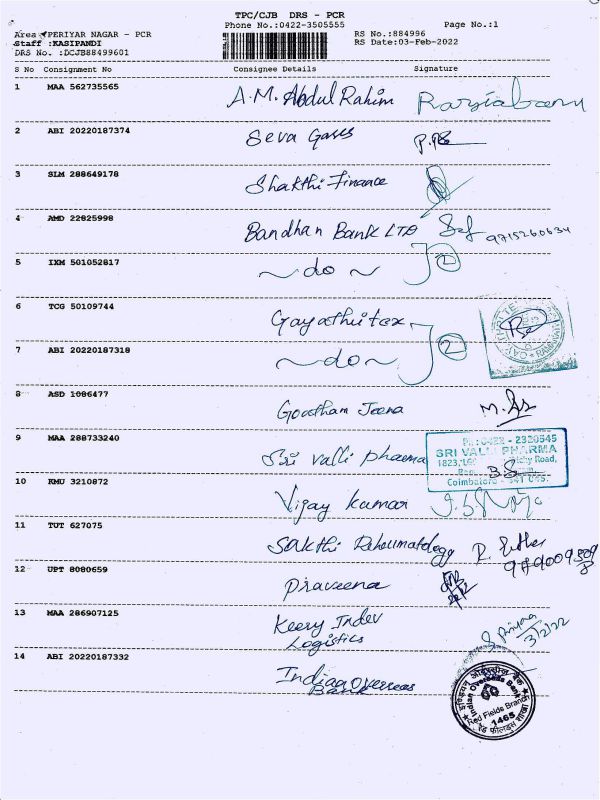 TPC/CJB DRS - PCR
Phone No.:0422-3505555
Page No.:1
Area :PERIYAR NAGAR - PCR
Staff :KASIPANDI
DRS No. :DCJB88499601
RS No.:884996
RS Date:03-Feb-2022
S No Consignment No Consignee Details Signature
1 MAA 562735565 A.M. Abdul Rahim Raziabanu
2 ABI 20220187374 Seva Gases
3 SLM 288649178 Shakthi Finance
4 AMD 22825998 Bandhan Bank LTD 9715260634
5 IXM 501052817 ~ do ~ 2
6 TCG 50109744 Gayathri tex
7 ABI 20220187318 ~ do ~ 2
8 ASD 1086477 Gootham Jeena
9 MAA 288733240 Sri valli pharma
Ph : 0422 - 2320545
SRI VALLI PHARMA
Coimbatore - 641 045.
10 KMU 3210872 Vijay kumar
11 TUT 627075 Sakthi Reheumatology R. Esther
12 UPT 8080659 Praveena
13 MAA 286907125 Keery Indev
Logistics
3/2/22
14 ABI 20220187332 Indian Overseas
Bank
Indian Overseas Bank
Red Fields Branch
1465